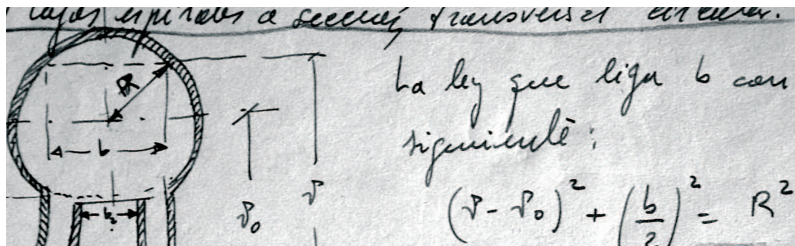 Cajas espirales a sección transversal circular.
La ley que liga b con
siguiente:
R
b
b₀
r₀
r
(r - r₀)² + (b/2)² = R²